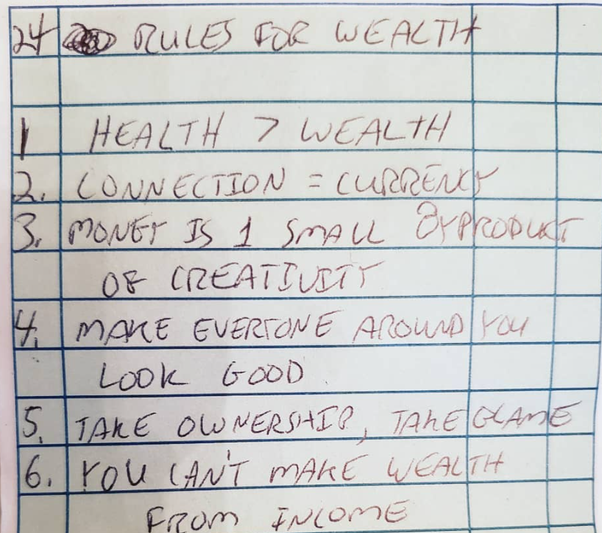 24 RULES FOR WEALTH
1 HEALTH > WEALTH
2. CONNECTION = CURRENCY
3. MONEY IS 1 SMALL BYPRODUCT
OF CREATIVITY
4. MAKE EVERYONE AROUND YOU
LOOK GOOD
5. TAKE OWNERSHIP, TAKE BLAME
6. YOU CAN'T MAKE WEALTH
FROM INCOME